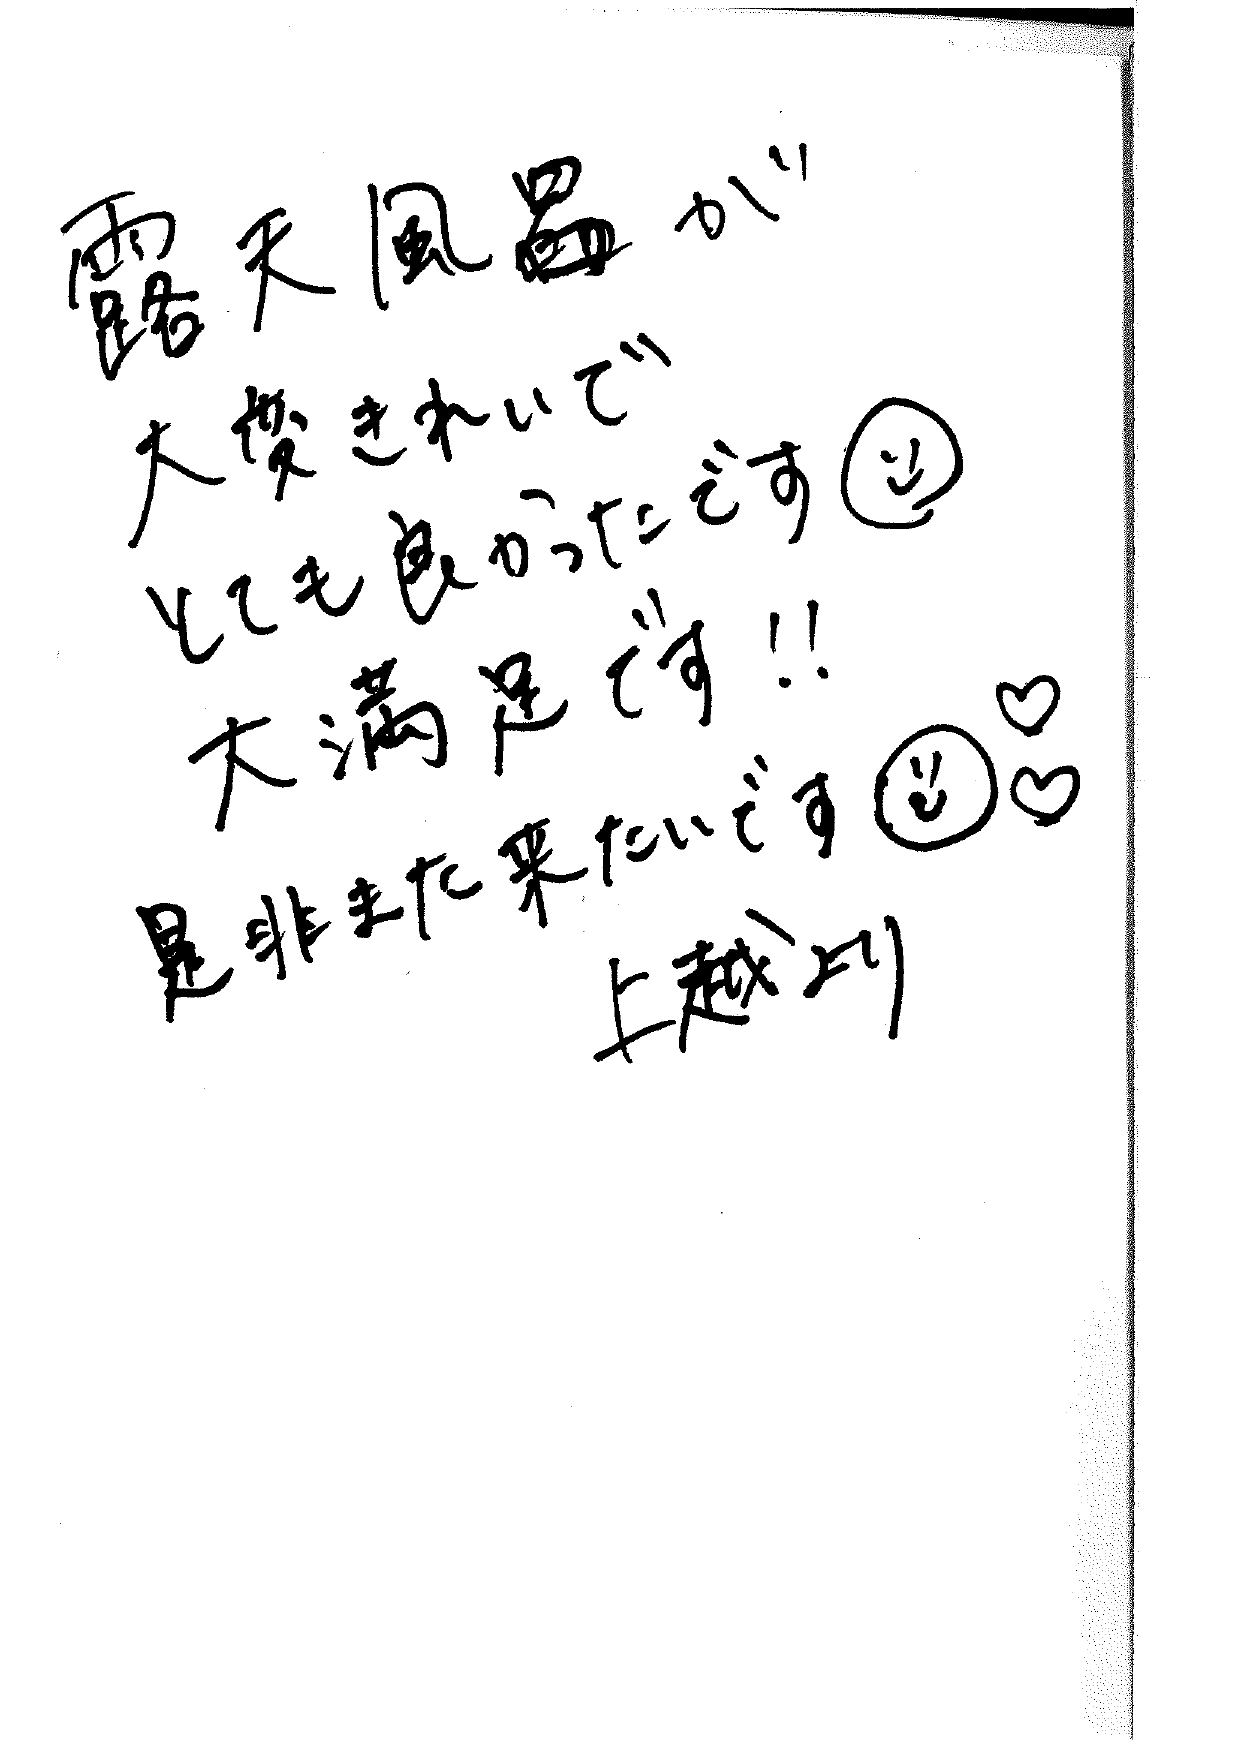 露天風呂が
大変きれいで
とても良かったです
大満足です!!
是非また来たいです
上越より